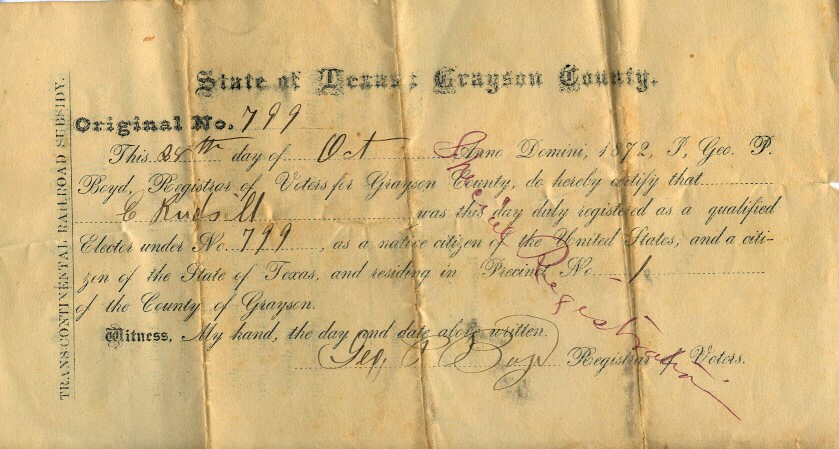 State of Texas: Grayson County.
Original No. 799
This 28th day of Oct Anno Domini, 1872, I, Geo. P.
Boyd, Registrar of Voters for Grayson County, do hereby certify that
C was this day duly registered as a qualified
Elector under No. 799, as a native citizen of the United States, and a citi-
zen of the State of Texas, and residing in Precinct No. 1
of the County of Grayson.
Witness, My hand, the day and date above written.
Geo. P. Boyd Registrar of Voters.
TRANSCONTINENTAL RAILROAD SUBSIDY.
Special Registration